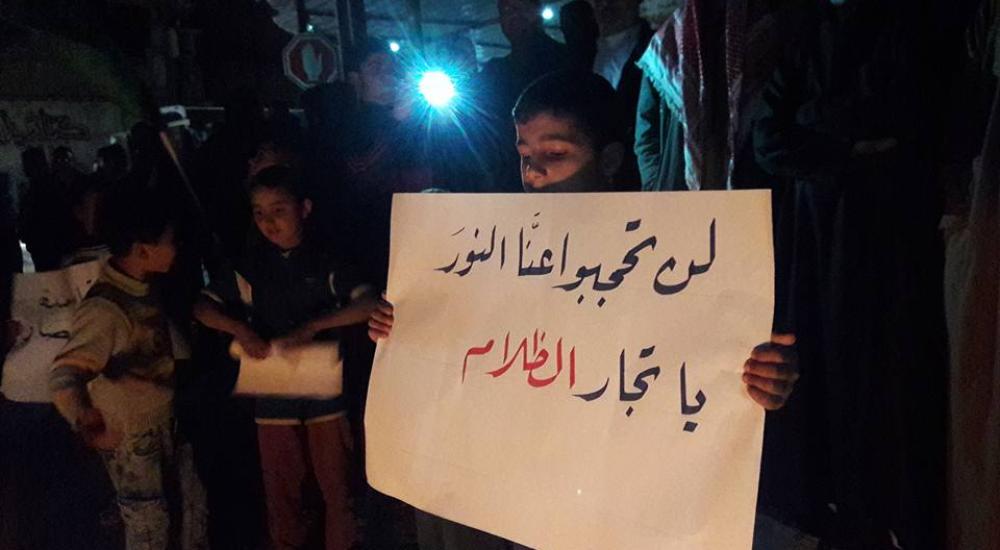 لن تحجبوا عنَّا النورَ
يا تجار الظلام